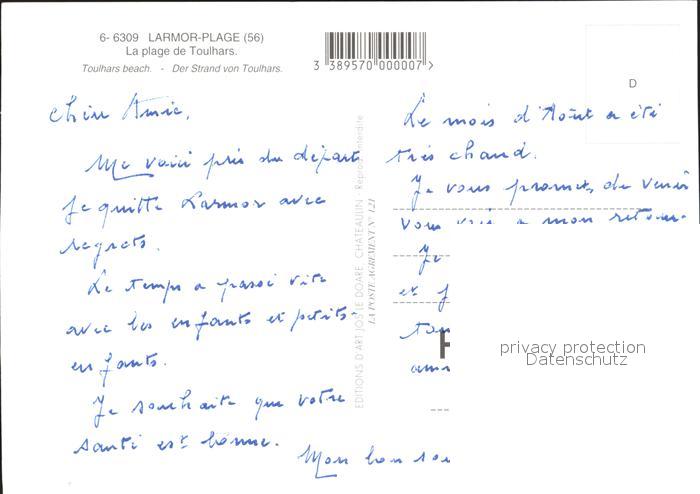 6- 6309 LARMOR-PLAGE (56)
La plage de Toulhars.
Toulhars beach. - Der Strand von Toulhars.
3 389570 000007 >
D
Chère Amie,
Me voici près du départ
Je quitte Larmor avec
regrets.
Le temps a passé vite
avec les enfants et petits-
enfants.
Je souhaite que votre
santé est bonne.
Mon bon sou
Le mois d'Août a été
très chaud.
Je vous promets de venir
vous voir a mon retour.
Je
et f
EDITIONS D'ART JOS LE DOARE CHATEAULIN - Reprod. interdite
LA POSTE AGREMENT N° 121
privacy protection
Datenschutz